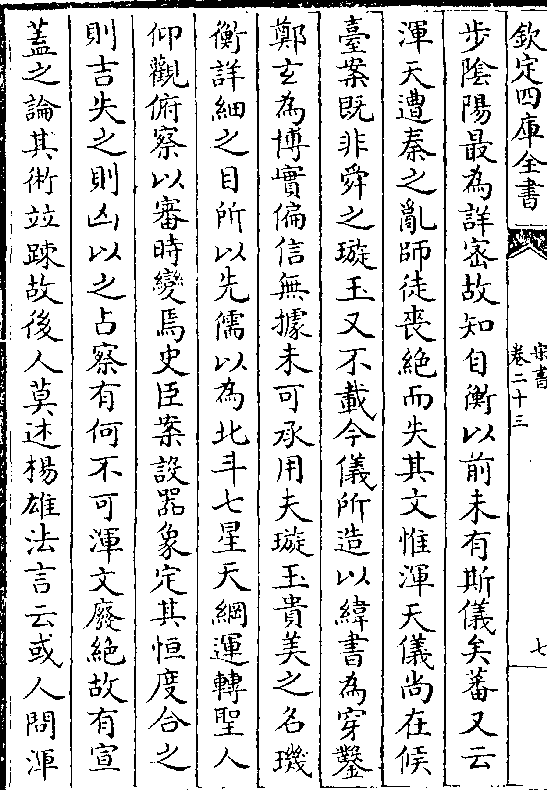 欽定四庫全書
宋書
卷二十三
七
步陰陽最為詳密故知自衡以前未有斯儀矣蕃又云
渾天遭秦之亂師徒喪絕而失其文惟渾天儀尚在候
臺案既非舜之璇玉又不載今儀所造以緯書為穿鑿
鄭玄為博實偏信無據未可承用夫璇玉貴美之名璣
衡詳細之目所以先儒以為北斗七星天綱運轉聖人
仰觀俯察以審時變焉史臣案設器象定其恒度合之
則吉失之則凶以之占察有何不可渾文廢絕故有宣
蓋之論其術竝踈故後人莫述楊雄法言云或人問渾